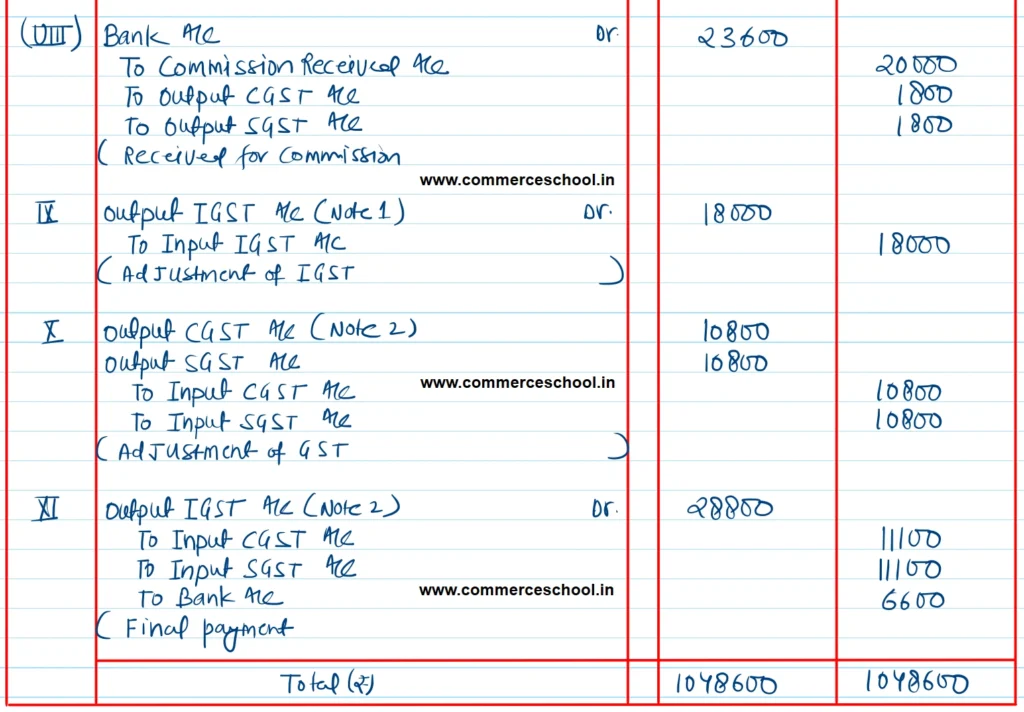 (VIII) Bank A/c Dr. 23600
To Commission Received A/c 20000
To Output CGST A/c 1800
To Output SGST A/c 1800
( Received for Commission
www.commerceschool.in
IX Output IGST A/c (Note 1) Dr. 18000
To Input IGST A/c 18000
( Adjustment of IGST )
X Output CGST A/c (Note 2) 10800
Output SGST A/c 10800
www.commerceschool.in
To Input CGST A/c 10800
To Input SGST A/c 10800
( Adjustment of GST )
XI Output IGST A/c (Note 2) Dr. 28800
To Input CGST A/c 11100
To Input SGST A/c 11100
www.commerceschool.in
To Bank A/c 6600
( Final payment
Total (₹) 1048600 1048600